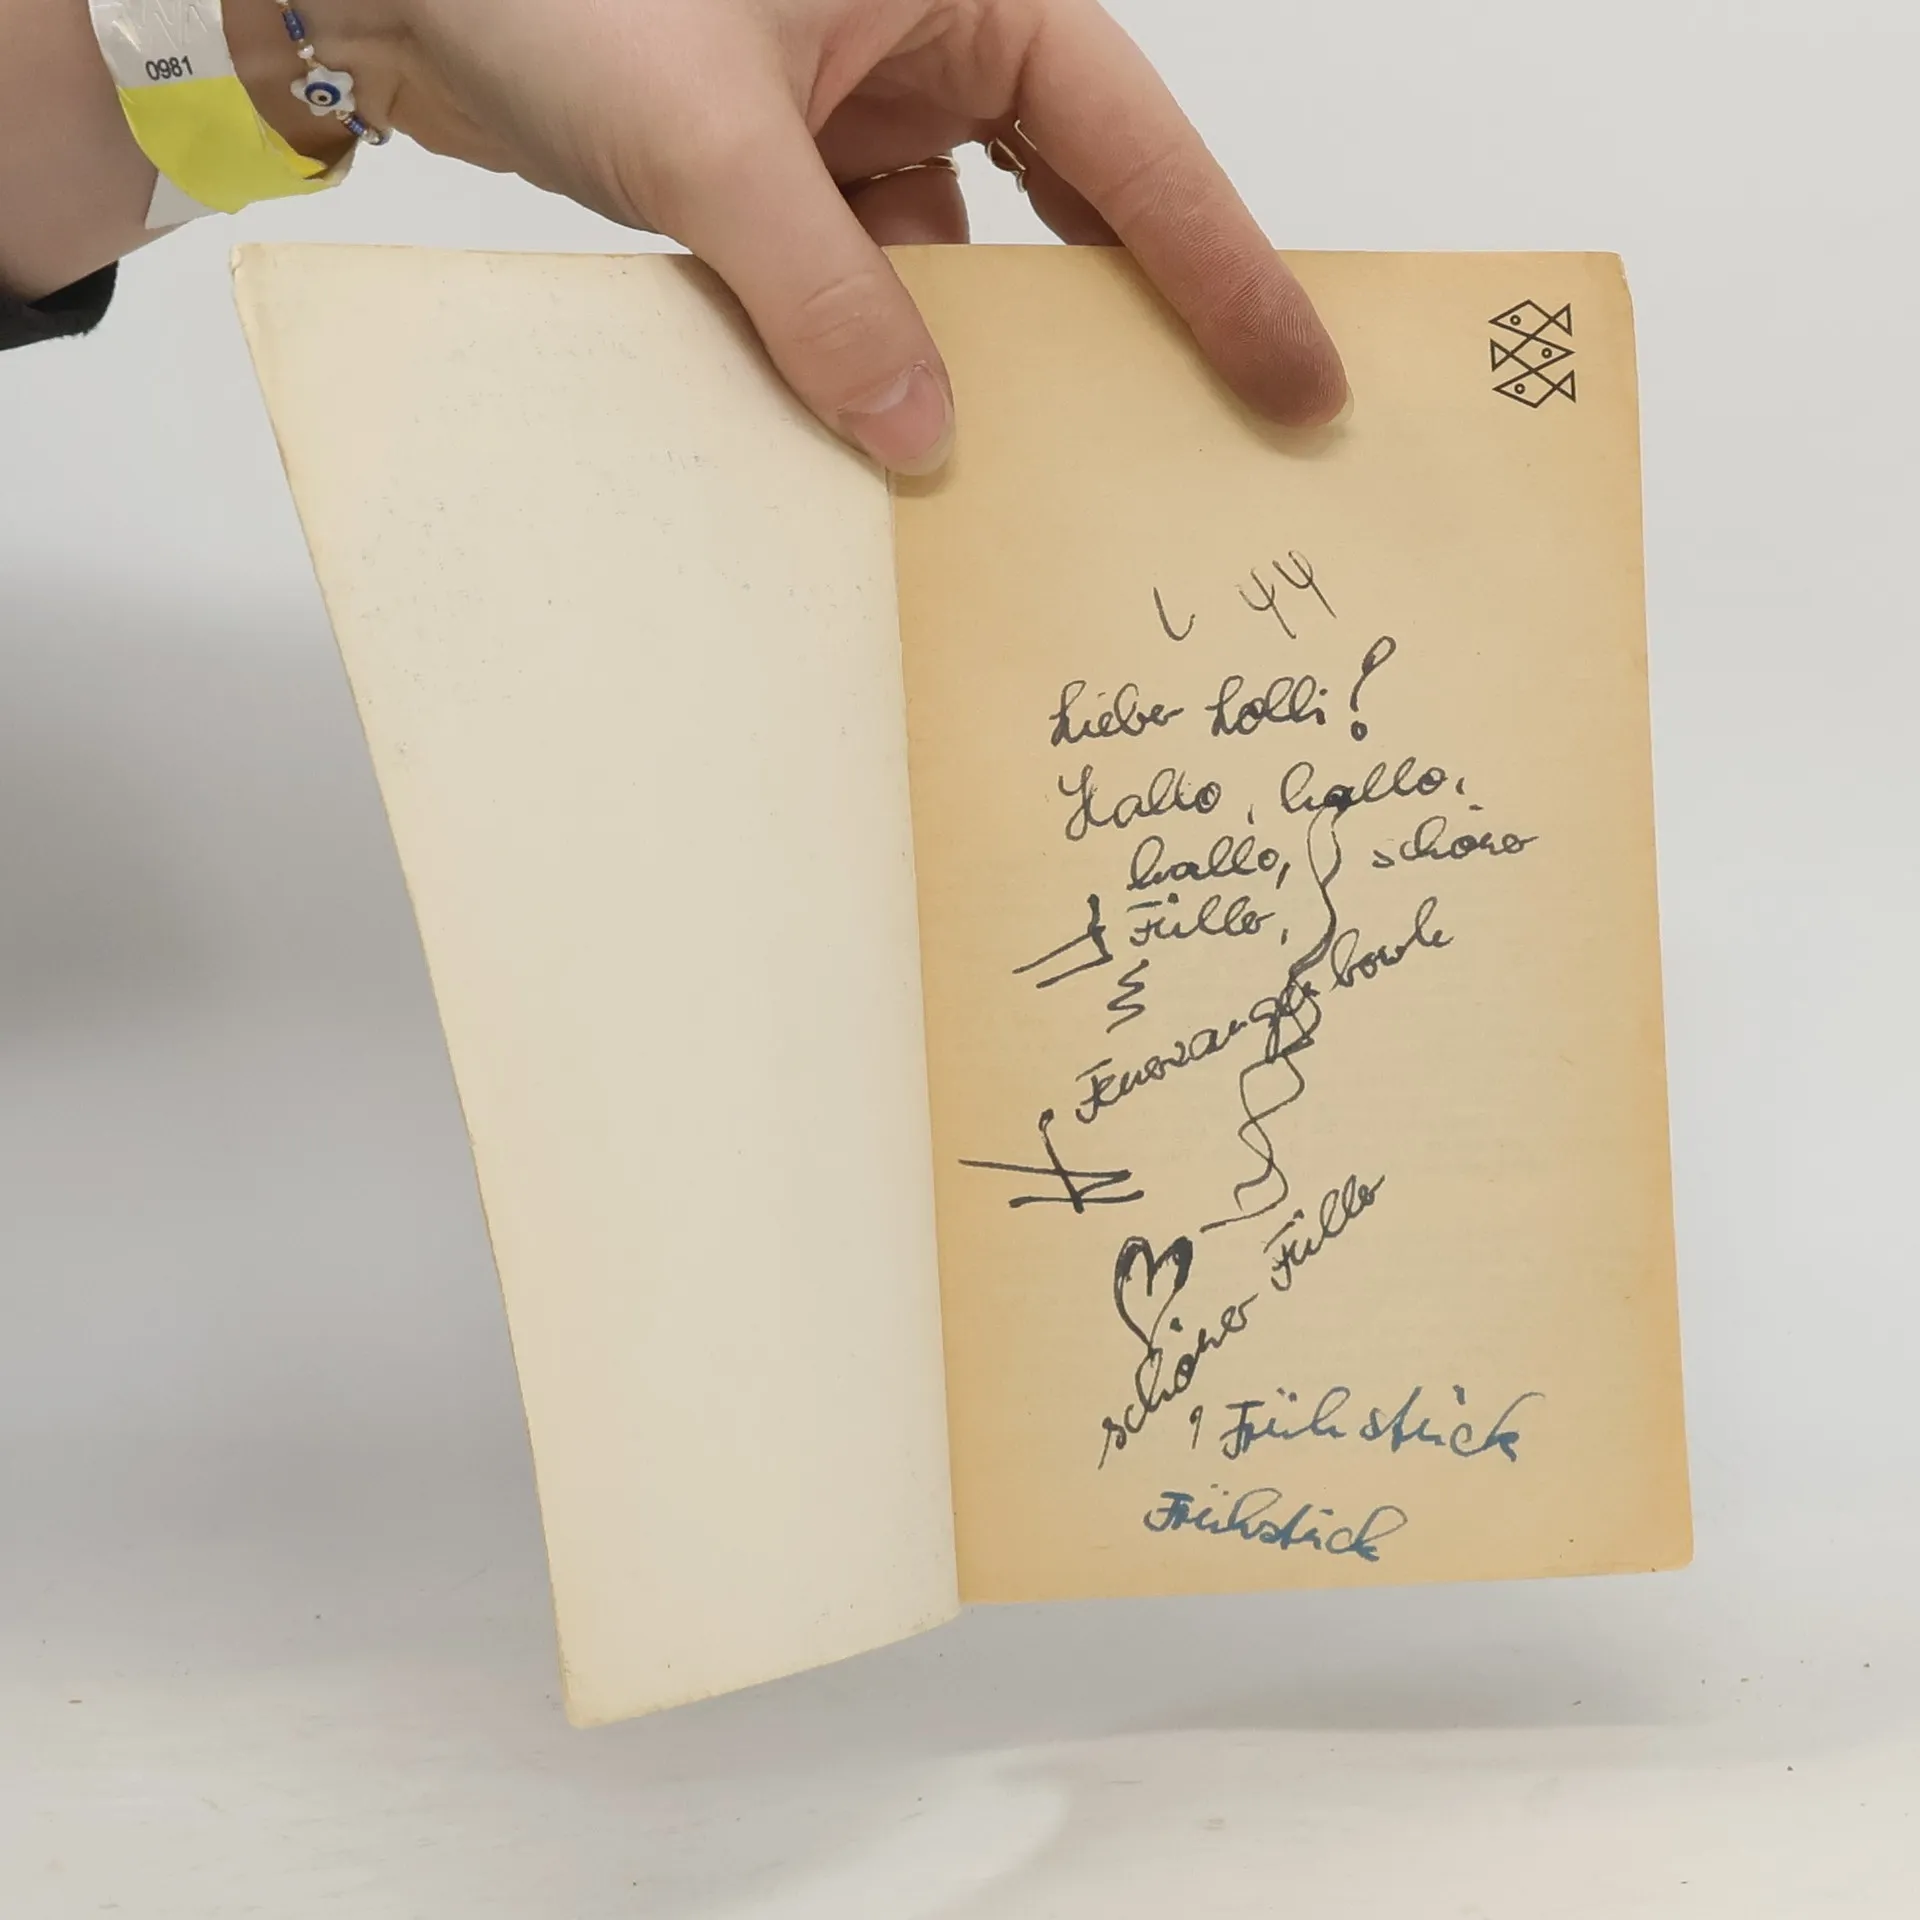 0981
L 44
Lieber Lolli!
Hallo, hallo,
hallo, schöne
Fülle,
Feuerzangenbowle
schöner Fülle
, Frühstück
Frühstück